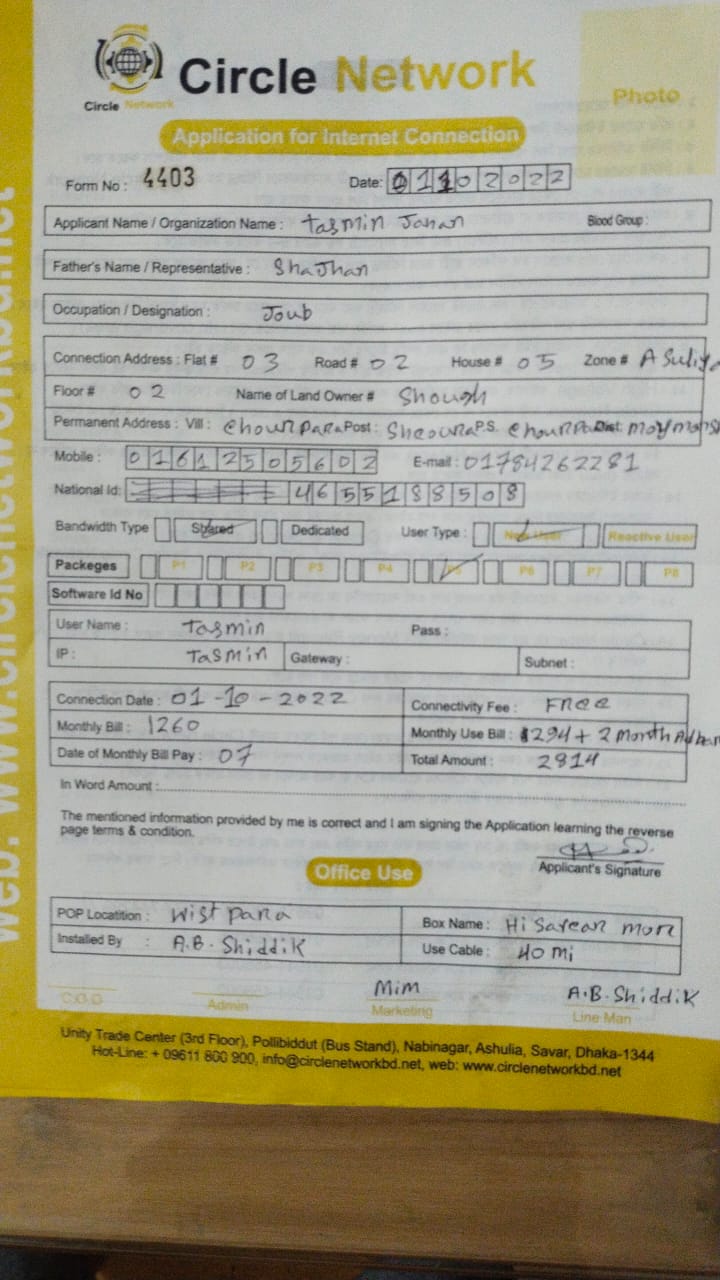 Circle Network
Circle Network
Photo
Application for Internet Connection
Form No : 4403 Date: 01102022
Applicant Name / Organization Name : Tasmin Jahan Blood Group :
Father's Name / Representative : ShaJhan
Occupation / Designation : Joub
Connection Address : Flat # 03 Road # 02 House # 05 Zone # ASuliya
Floor # 02 Name of Land Owner # Shough
Permanent Address : Vill : ChourPara Post : P.S. ChourPara Dist:
Mobile : 01612505602 E-mail : 01784262281
National Id: 4655188508
Bandwidth Type Shared Dedicated User Type : New User Reactive User
Packeges P1 P2 P3 P4 P5 P6 P7 P8
Software Id No
User Name : Tasmin Pass :
IP : Tasmin Gateway : Subnet :
Connection Date : 01-10-2022 Connectivity Fee : Free
Monthly Bill : 1260 Monthly Use Bill : 294 + 2 month
Date of Monthly Bill Pay : 07 Total Amount : 2814
In Word Amount :
The mentioned information provided by me is correct and I am signing the Application learning the reverse
page terms & condition.
Applicant's Signature
Office Use
POP Locatition : Wist Para Box Name : Hi Sarean more
Installed By : A.B. Shiddik Use Cable : 40 mi
Mim A.B. Shiddik
C.O.O Admin Marketing Line Man
Unity Trade Center (3rd Floor), Pollibiddut (Bus Stand), Nabinagar, Ashulia, Savar, Dhaka-1344
Hot-Line: + 09611 800 900, info@circlenetworkbd.net, web: www.circlenetworkbd.net
web: www.circlenetworkbd.net